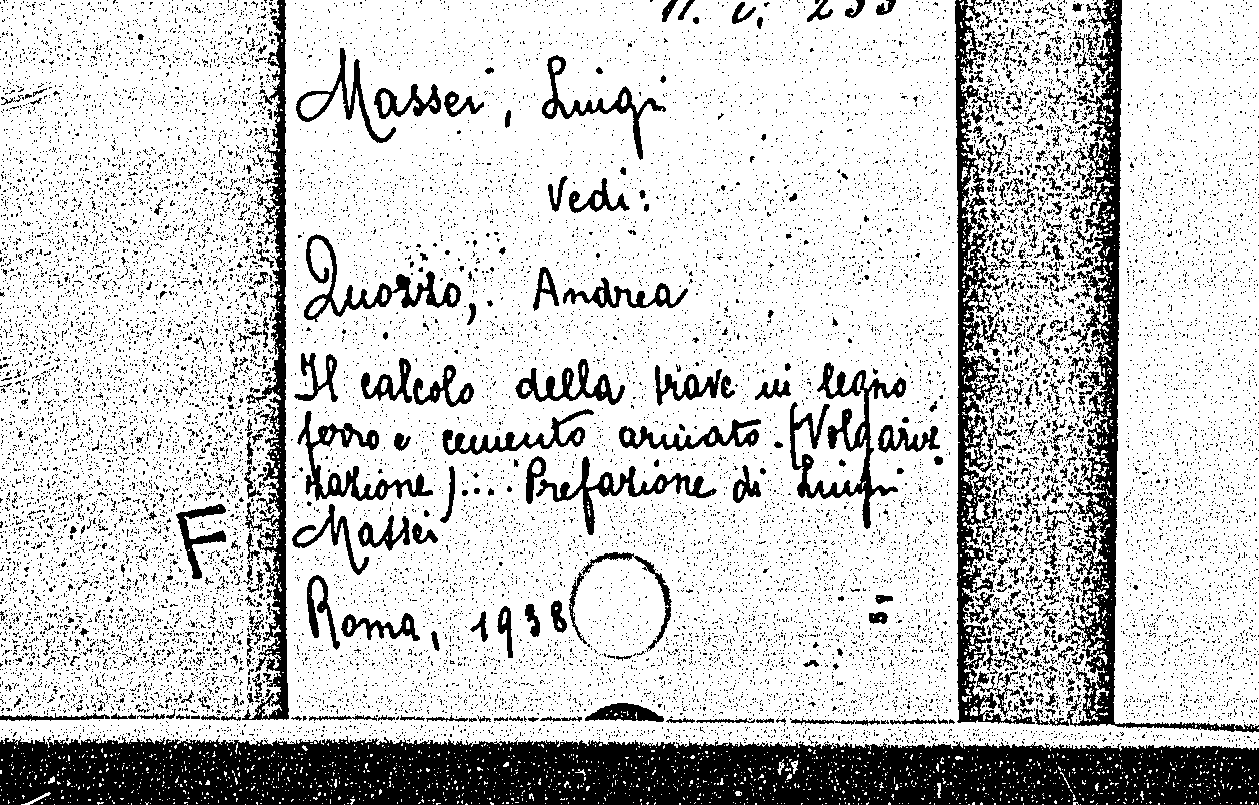 Massei, Luigi
Vedi:
Quozzo, Andrea
Il calcolo della trave in legno
ferro e cemento armato. (Volgariz
zazione)... Prefazione di Luigi
Massei
F
Roma, 1938
51